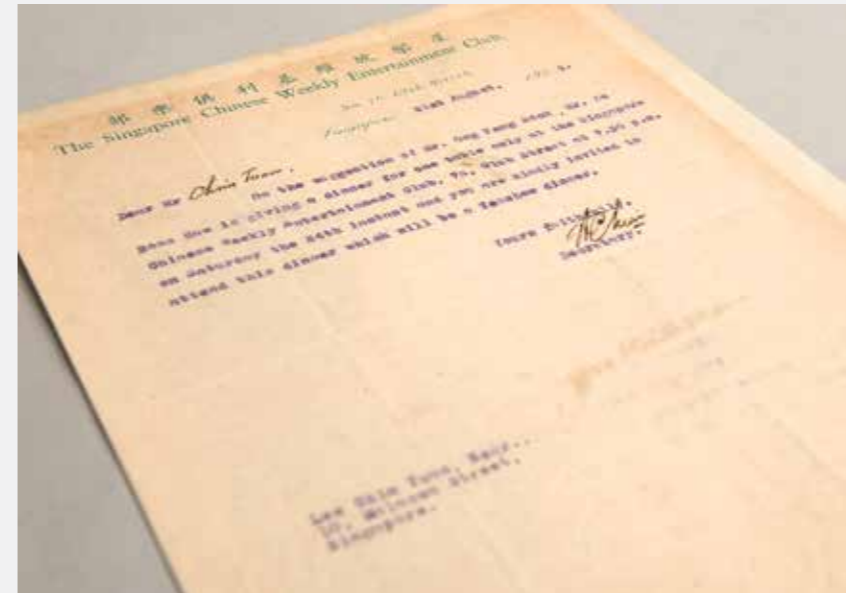 星架坡維基利俱樂部
The Singapore Chinese Weekly Entertainment Club.
Singapore 21st August,
Dear Mr Chim Tuan,
On the suggestion of Mr. Ong Mr.
is giving a dinner for one table only at the Singapore
Chinese Weekly Entertainment Club, 76, Club Street at 7.30 p.m.
on Saturday the 24th instant and you are kindly invited to
attend this dinner which will be a Teochew dinner.
Yours faithfully,
Secretary.
Lee Chim Tuan, Esqr.,
Street,
Singapore.